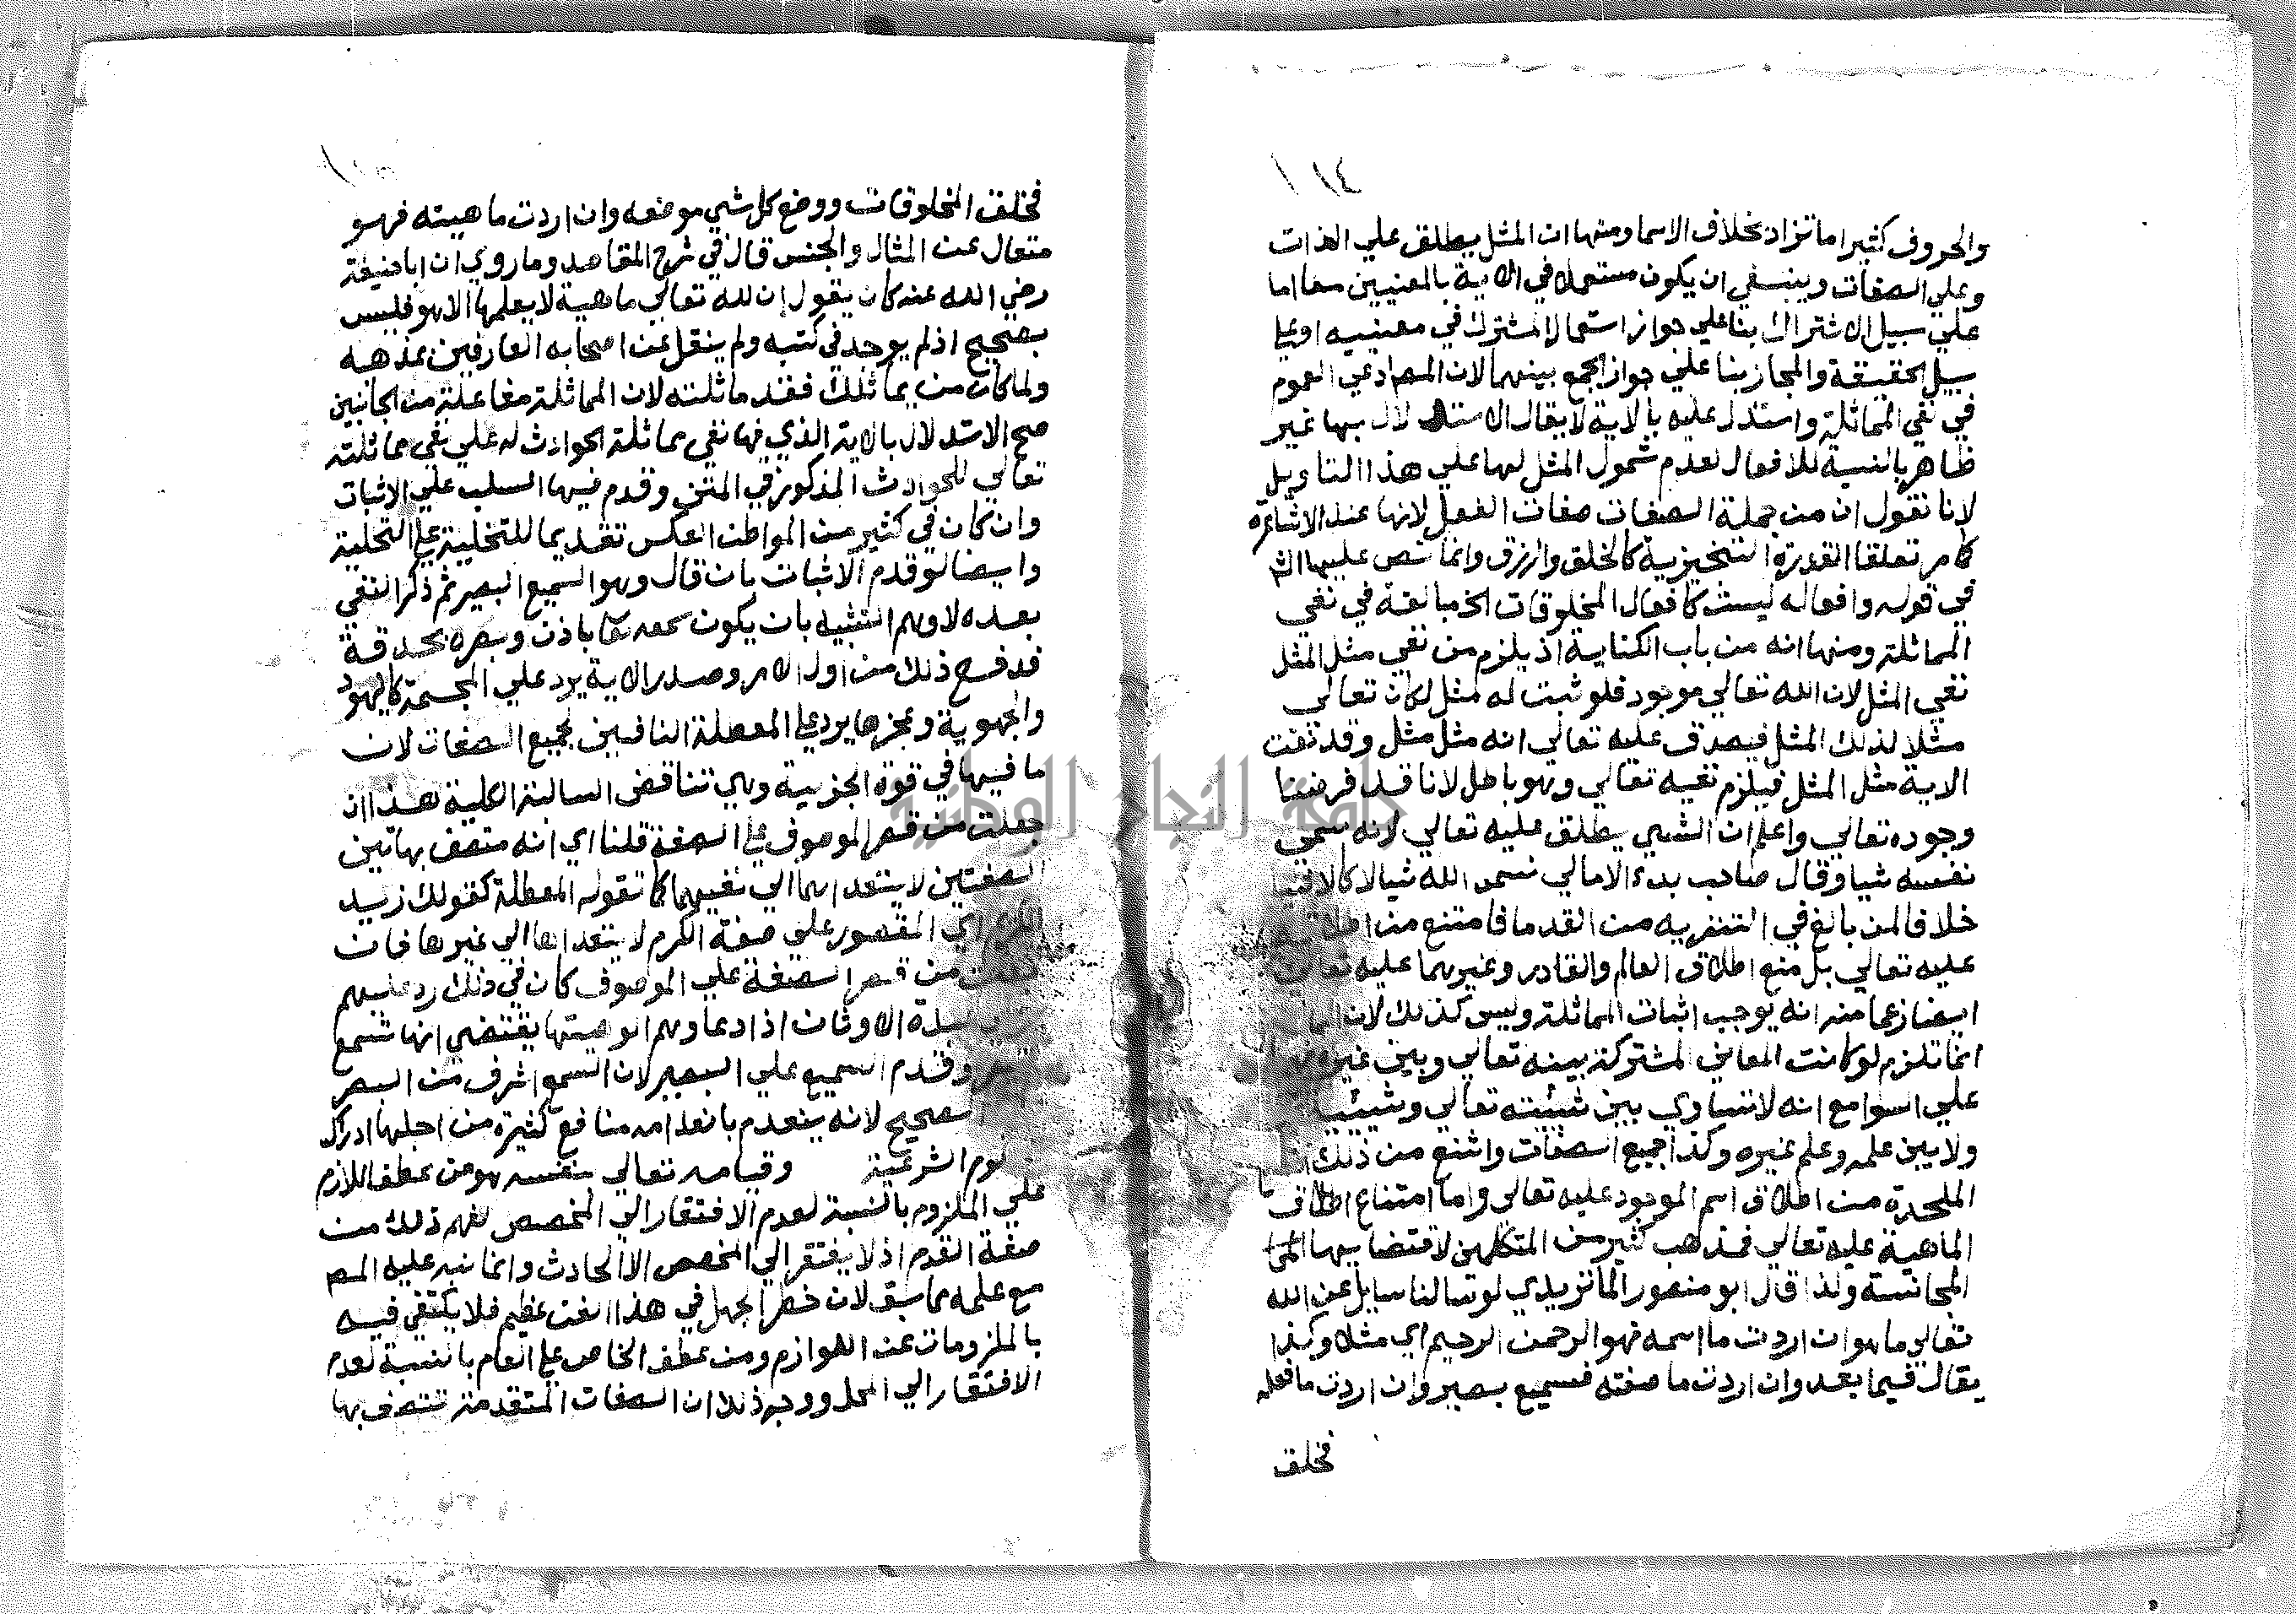 ١٤
والحروف كثيرا ما تزاد بخلاف الاسما ومنها ان المثل يطلق علي الذات
وعلي الصفات وينبغي ان يكون مستعملا في الاية بالمعنيين معا اما
علي سبيل الاشتراك بنا علي جواز استعمال المشترك في معنييه او علي
سبيل الحقيقة والمجاز بنا علي جواز الجمع بينهما لان المص ادعي العموم
في نفي المماثلة واستدل عليه بالاية لا يقال الاستدلال بها غير
ظاهر بالنسبة للافعال لعدم شمول المثل لها علي هذا التاويل
لانا نقول ان من جملة الصفات صفات الفعل لانها عند الاشاعرة
كما مر تعلقا القدرة التنجيزية كالخلق والرزق وانما نص عليها الش
في قوله وافعاله ليست كافعال المخلوقات الخ مبالغة في نفي
المماثلة ومنها انه من باب الكناية اذ يلزم من نفي مثل المثل
نفي المثل لان الله تعالي موجود فلو ثبت له مثل لكان تعالي
مثلا لذلك المثل فيصدق عليه تعالي انه مثل مثل وقد نفت
الاية مثل المثل فيلزم نفيه تعالي وهو باطل لانا قد فرضنا
وجوده تعالي واعلم ان الشي يطلق عليه تعالي لانه سمي
نفسه شيا وقال صاحب بدء الامالي نسمي الله شيا لا كالاشيا
خلافا لمن بالغ في التنزيه من القدما فامتنع من اطلاقه
عليه تعالي بل منع اطلاق العالم والقادر وغيرهما عليه تعالي
ايضا زعما منه انه يوجب اثبات المماثلة وليس كذلك لان
انما تلزم لو كانت المعاني المشتركة بينه تعالي وبين غيره
علي السوا مع انه لا تساوي بين شيئيته تعالي وشيئية
ولا بين علمه وعلم غيره وكذا جميع الصفات واشنع من ذلك
الملحدة من اطلاق اسم الموجود عليه تعالي واما امتناع اطلاق
الماهية عليه تعالي فمذهب كثير من المتكلمين لاقتضايها
المجانسة ولذا قال ابو منصور الماتريدي لو سالنا سايل عن الله
تعالي ما هو ان اردت ما اسمه فهو الرحمن الرحيم اي مثلا وكذا
يقال فيما بعد وان اردت ما صفته فسميع بصير وان اردت ما فعله
فخلق
فخلق المخلوقات ووضع كل شي موضعه وان اردت ما هيته فهو
متعال عن المثال والجنس قال في شرح المقاصد وما روي ان ابا حنيفة
رضي الله عنه كان يقول ان لله تعالي ماهية لا يعلمها الا هو فليس
بصحيح اذ لم يوجد في كتبه ولم ينقل عن اصحابه العارفين بمذهبه
ولما كان من يماثلك فقد ماثلته لان المماثلة مفاعلة من الجانبين
صح الاستدلال بالاية الذي فيها نفي مماثلة الحوادث له علي نفي مماثلته
تعالي للحوادث المذكور في المتن وقدم فيها السلب علي الاثبات
وان كان في كثير من المواطن العكس تقديما للتخلية علي التحلية
وايضا لو قدم الاثبات بان قال وهو السميع البصير ثم ذكر النفي
بعده لاوهم التشبيه بان يكون سمعه كما باذن وبصره بحدقة
فدفع ذلك من اول الامر وصدر الاية يرد علي المجسمة كاليهود
والجهوية وعجزها يرد علي المعطلة النافين لجميع الصفات لان
ما فيها في قوة الجزيية وهي تناقض السالبة الكلية هذا ان
جعلت من قصر الموصوف علي الصفة قلنا اي انه متصف بهاتين
الصفتين لا يتعداهما الي نفيهما كما تقوله المعطلة كقولك زيد
اي المقصور علي صفة الكرم لا يتعداها الي غيرها فان
من قصر الصفة علي الموصوف كان في ذلك رد عليهم
الاوثان اذ ادعاوهم الوهيتها يقتضي انها تسمع
وقدم السميع علي البصير لان السمع اشرف من البصر
لانه ينعدم بانعدامه منافع كثيرة من اجلها ادراك
الشرعية وقيامه تعالي بنفسه هو من عطف اللازم
علي الملزوم بالنسبة لعدم الافتقار الي المخصص لفهم ذلك من
صفة القدم اذ لا يفتقر الي المخصص الا الحادث وانما نبه عليه المص
مع علمه مما سبق لان خطر الجهل في هذا الفن عظيم فلا يكتفي فيه
بالملزومات عن اللوازم ومن عطف الخاص علي العام بالنسبة لعدم
الافتقار الي المحل ووجه ذلك ان الصفات المتقدمة تتصف بها
جامعة النجاح الوطنية